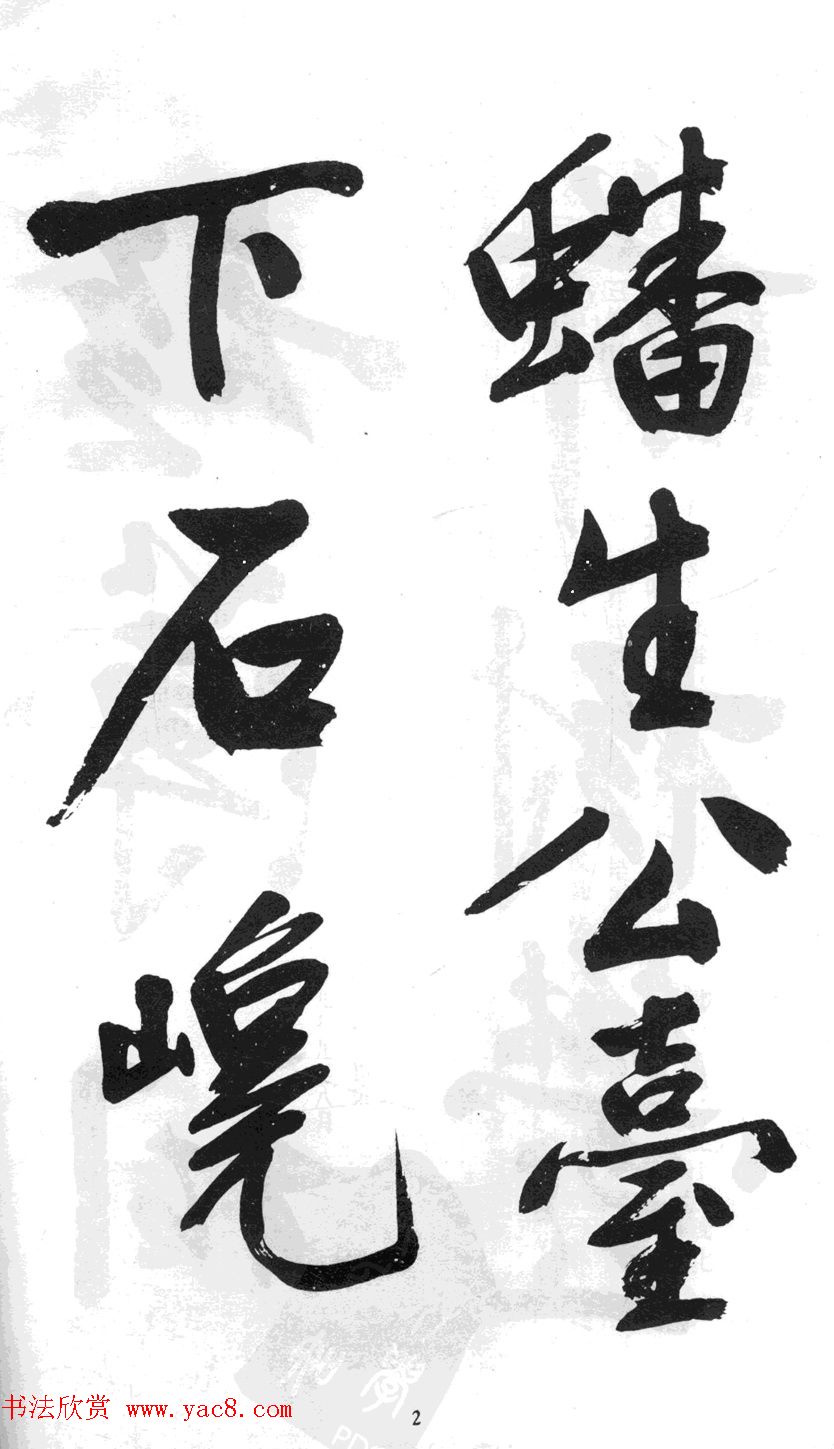 蟠生公臺
下石巉
书法欣赏 www.yac8.com
2